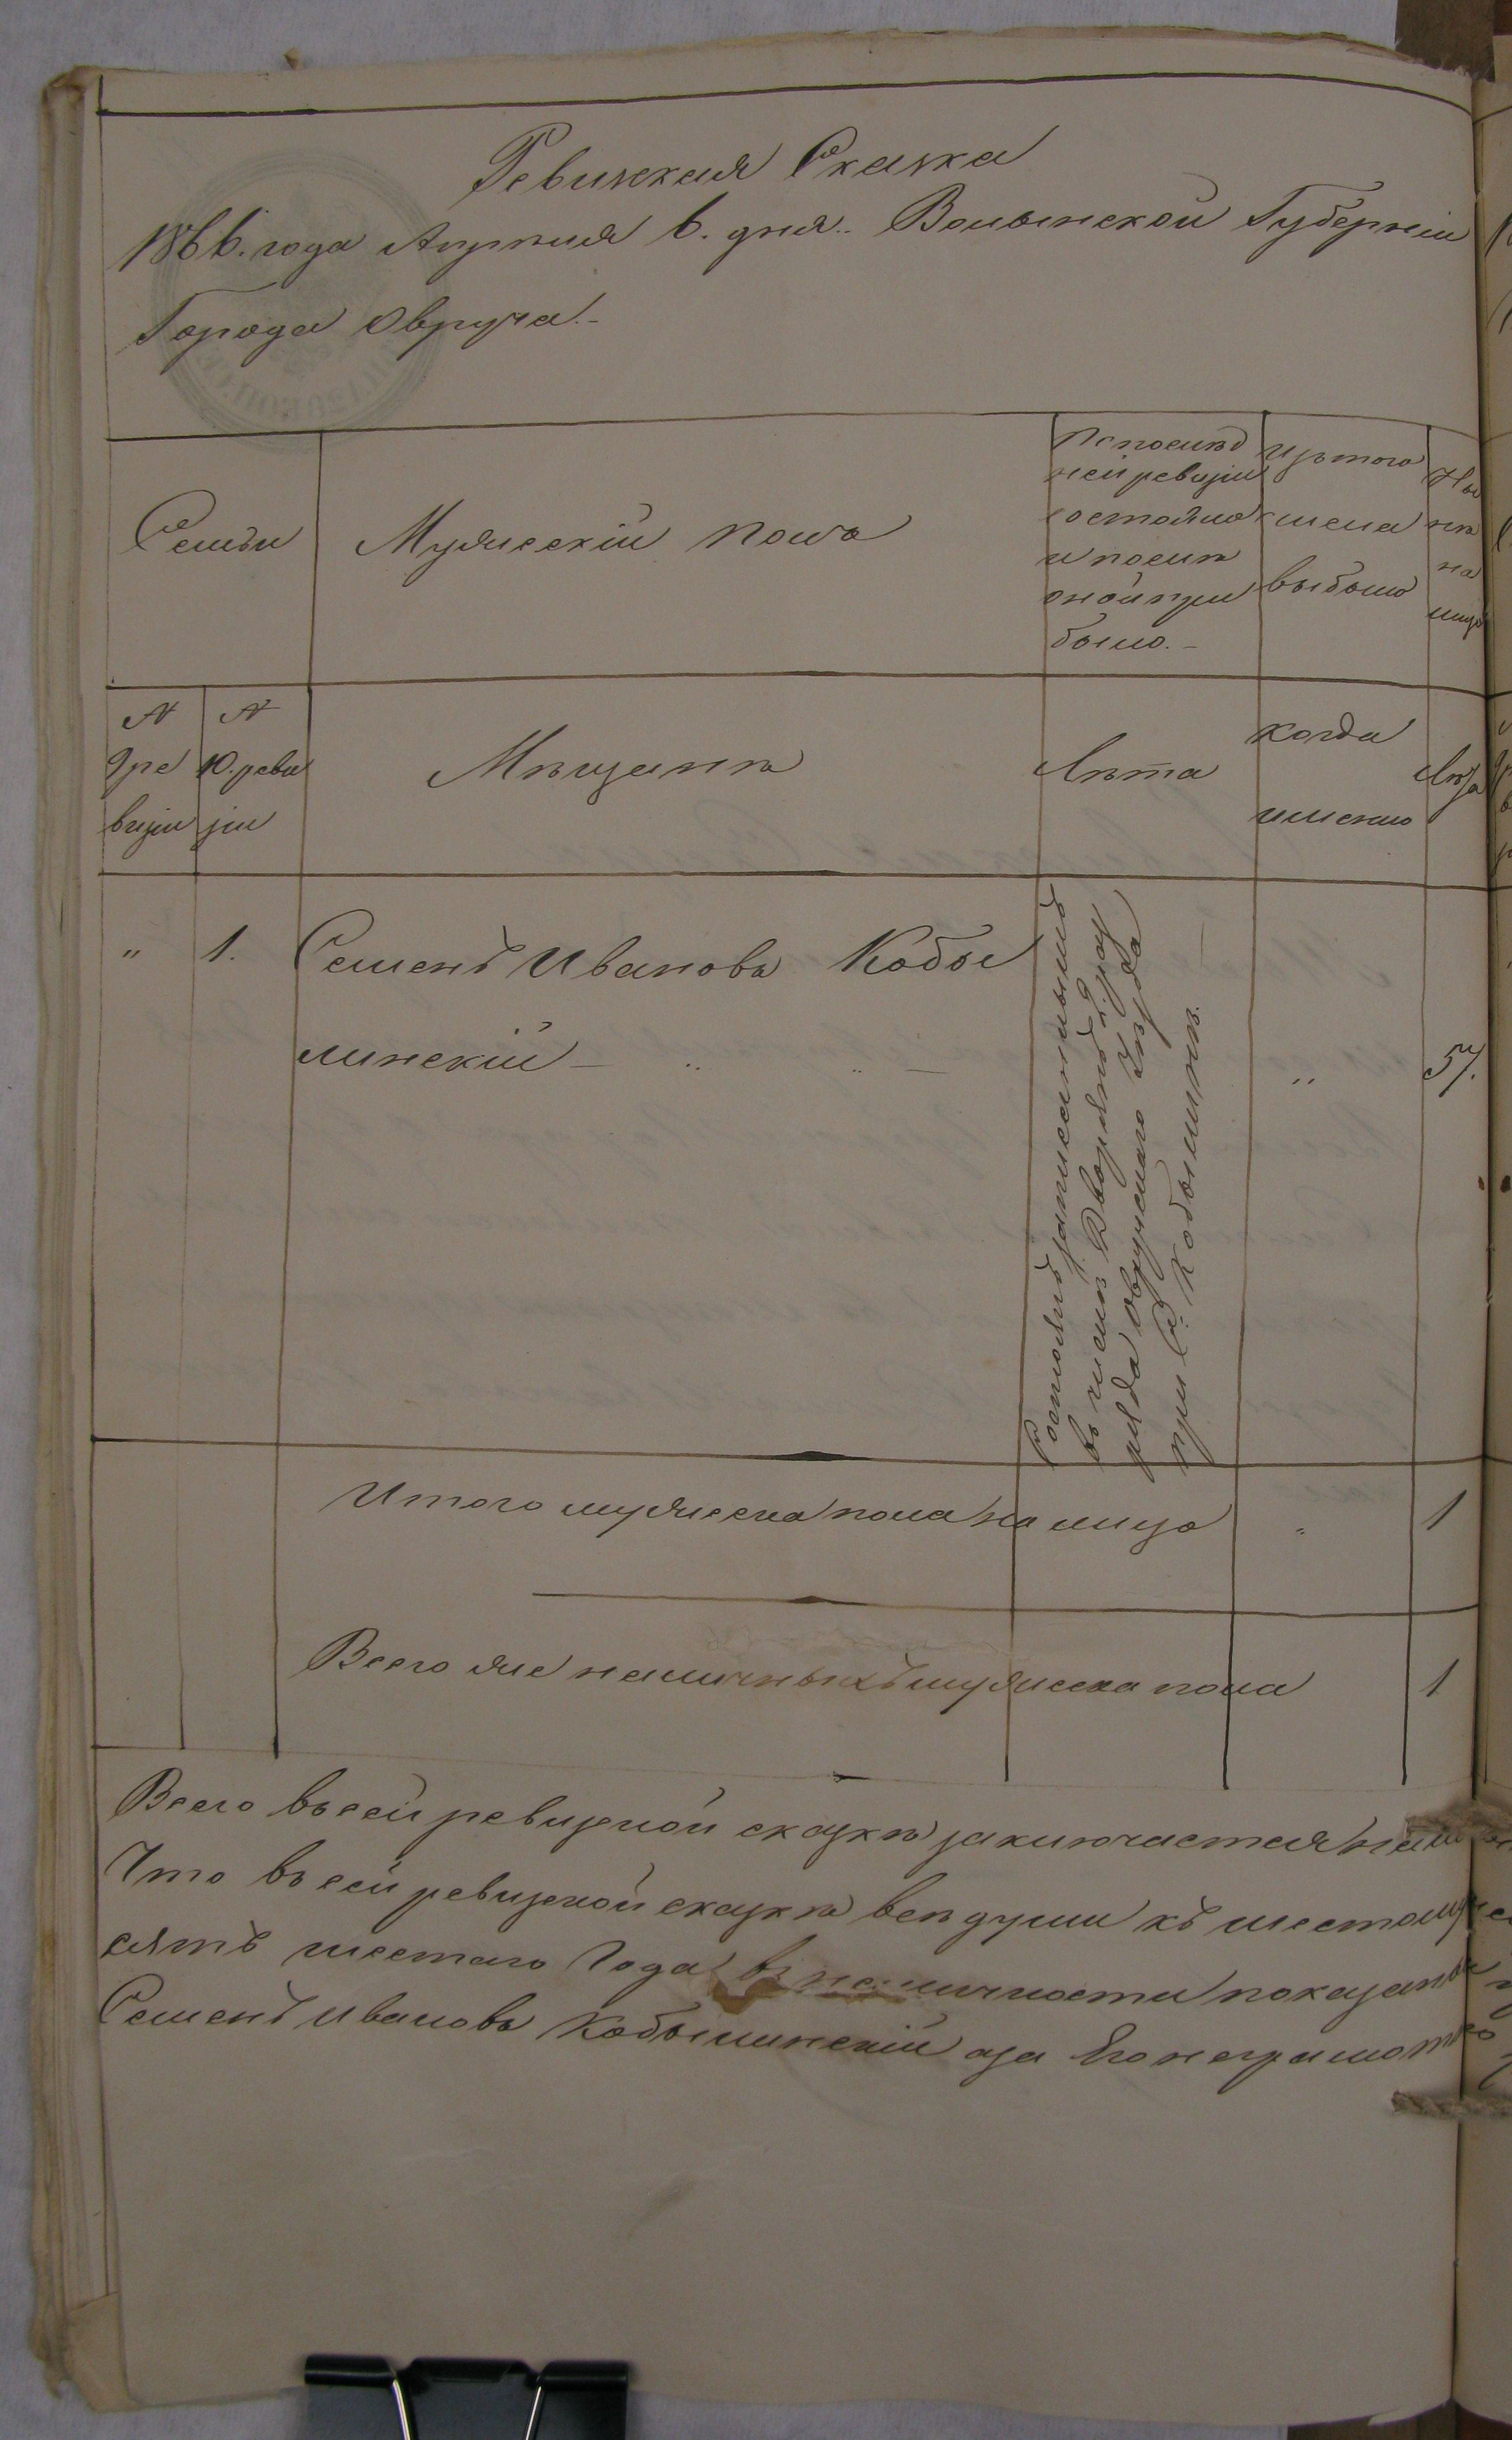 Ревизкая Сказка
1866. года Апреля 6. дня. Волынской Губерніи
Города Овруча.-
Семьи
Мужескій полъ
По послѣд
ней ревизіи
состояло
и послѣ
оной при
было.-
Изъ того
числа
выбыло
Ны
нѣ
на
лицо
№
9 ре
визіи
№
10. реви
зіи
Мѣщанѣ
Лѣта
когда
именно
Лѣта
" 1. Семенъ Ивановъ Кобы
линскій - " " - " 57.
Состоялъ записаннымъ
въ числѣ Дворянъ 2 раз
ряда Овручскаго Уѣзда
при С. Кобылинѣ.
Итого мужеска пола на лицо " 1
Всего же наличныхъ мужеска пола 1
Всего въ сей ревизкой сказкѣ заключается
Что въ сей ревизкой сказкѣ всѣ души къ шестому
сятъ шестаго Года въ наличности показаны
Семенъ Ивановъ Кобылинскій а за Его неграмот